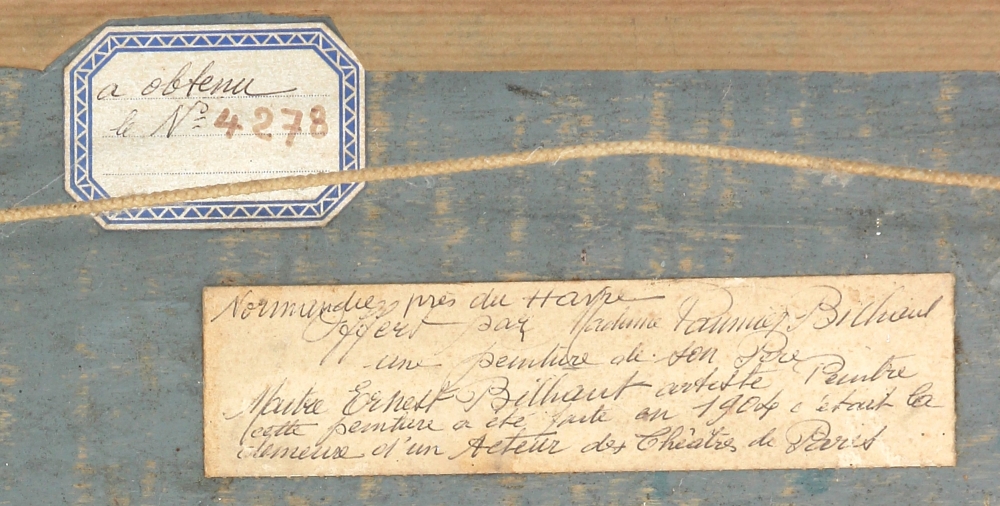 a obtenu
le Nº 4278
Normandie près du Havre
Offert par Madame Bilhaut
une peinture de son Père
Maitre Ernest Bilhaut artiste Peintre
cette peinture a été faite en 1904 c'était la
demeure d'un Acteur des Théâtres de Paris